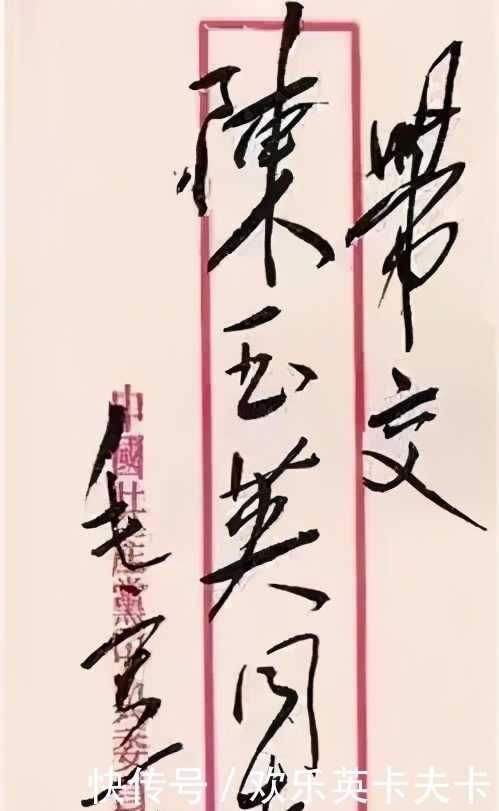 帶交
陳玉英同
毛
中國共產黨中央委
快传号 / 欢乐英卡夫卡